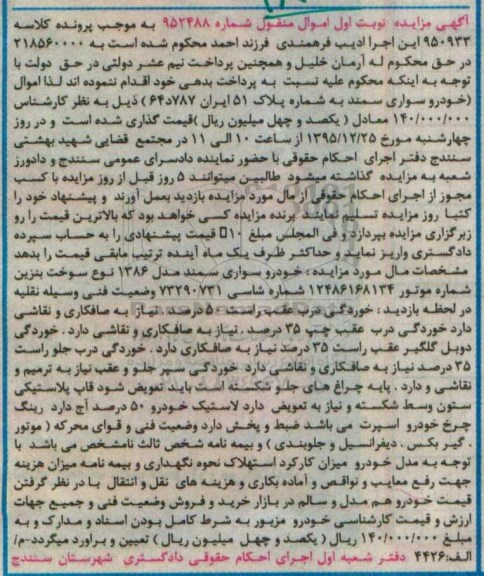 آگهی مزایده نوبت اول اموال منقول شماره ۹۵۲۴۸۸ به موجب پرونده کلاسه
۹۵۰۹۳۳ این اجرا ادیب فرهمندی فرزند احمد محکوم شده است به ۲۱۸۵۶۰۰۰۰
در حق محکوم له آرمان خلیل و همچنین پرداخت نیم عشر دولتی در حق دولت با
توجه به اینکه محکوم علیه نسبت به پرداخت بدهی خود اقدام ننموده اند لذا اموال
(خودرو سواری سمند به شماره پلاک ۵۱ ایران ۷۸۷د۶۴) ذیل به نظر کارشناس
۱۴۰/۰۰۰/۰۰۰ معادل ( یکصد و چهل میلیون ریال )قیمت گذاری شده است و در روز
چهارشنبه مورخ ۱۳۹۵/۱۲/۲۵ از ساعت ۱۰ الی ۱۱ در مجتمع قضایی شهید بهشتی
سنندج دفتر اجرای احکام حقوقی با حضور نماینده دادسرای عمومی سنندج و دادورز
شعبه به مزایده گذاشته میشود طالبین میتوانند ۵ روز قبل از روز مزایده با کسب
مجوز از اجرای احکام حقوقی از مال مورد مزایده بازدید بعمل آورند و پیشنهاد خود را
کتبا روز مزایده تسلیم نمایند برنده مزایده کسی خواهد بود که بالاترین قیمت را رو
زبرگزاری مزایده بپردازد و فی المجلس مبلغ ۱۰٪ قیمت پیشنهادی را به حساب سپرده
دادگستری واریز نماید و حداکثر ظرف یک ماه آینده ترتیب مابقی قیمت را بدهد
مشخصات مال مورد مزایده : خودرو سواری سمند مدل ۱۳۸۶ نوع سوخت بنزین
شماره موتور ۱۲۴۸۶۱۶۸۱۳۴ شماره شاسی ۷۳۲۹۰۷۳۱ وضعیت فنی وسیله نقلیه
در لحظه بازدید : خوردگی درب عقب راست ۵۰ درصد نیاز به صافکاری و نقاشی
دارد خوردگی درب عقب چپ ۳۵ درصد ، نیاز به صافکاری و نقاشی دارد . خوردگی
دوبل گلگیر عقب راست ۳۵ درصد نیاز به صافکاری دارد . خوردگی درب جلو راست
۳۵ درصد نیاز به صافکاری و نقاشی دارد خوردگی سپر جلو و عقب نیاز به ترمیم و
نقاشی و دارد . پایه چراغ های جلو شکسته است باید تعویض شود قاب پلاستیکی
ستون وسط شکسته و نیاز به تعویض دارد لاستیک خودرو ۵۰ درصد آج دارد رینگ
چرخ خودرو اسپرت می باشد ضبط و پخش دارد وضعیت فنی و قوای محرکه ( موتور
. گیر بکس . دیفرانسیل و جلوبندی ) و بیمه نامه شخص ثالث نامشخص می باشد با
توجه به مدل خودرو میزان کارکرد استهلاک نحوه نگهداری و بیمه نامه میزان هزینه
جهت رفع معایب و نواقص و آماده بکاری و هزینه های نقل و انتقال با در نظر گرفتن
قیمت خودرو هم مدل و سالم در بازار خرید و فروش وضعیت فنی و جمیع جهات
ارزش و قیمت کارشناسی خودرو مزبور به شرط کامل بودن اسناد و مدارک و به
مبلغ ۱۴۰/۰۰۰/۰۰۰ ریال ( یکصد و چهل میلیون ریال ) تعیین و براورد میگردد-م/
الف:۴۴۲۶ دفتر شعبه اول اجرای احکام حقوقی دادگستری شهرستان سنندج